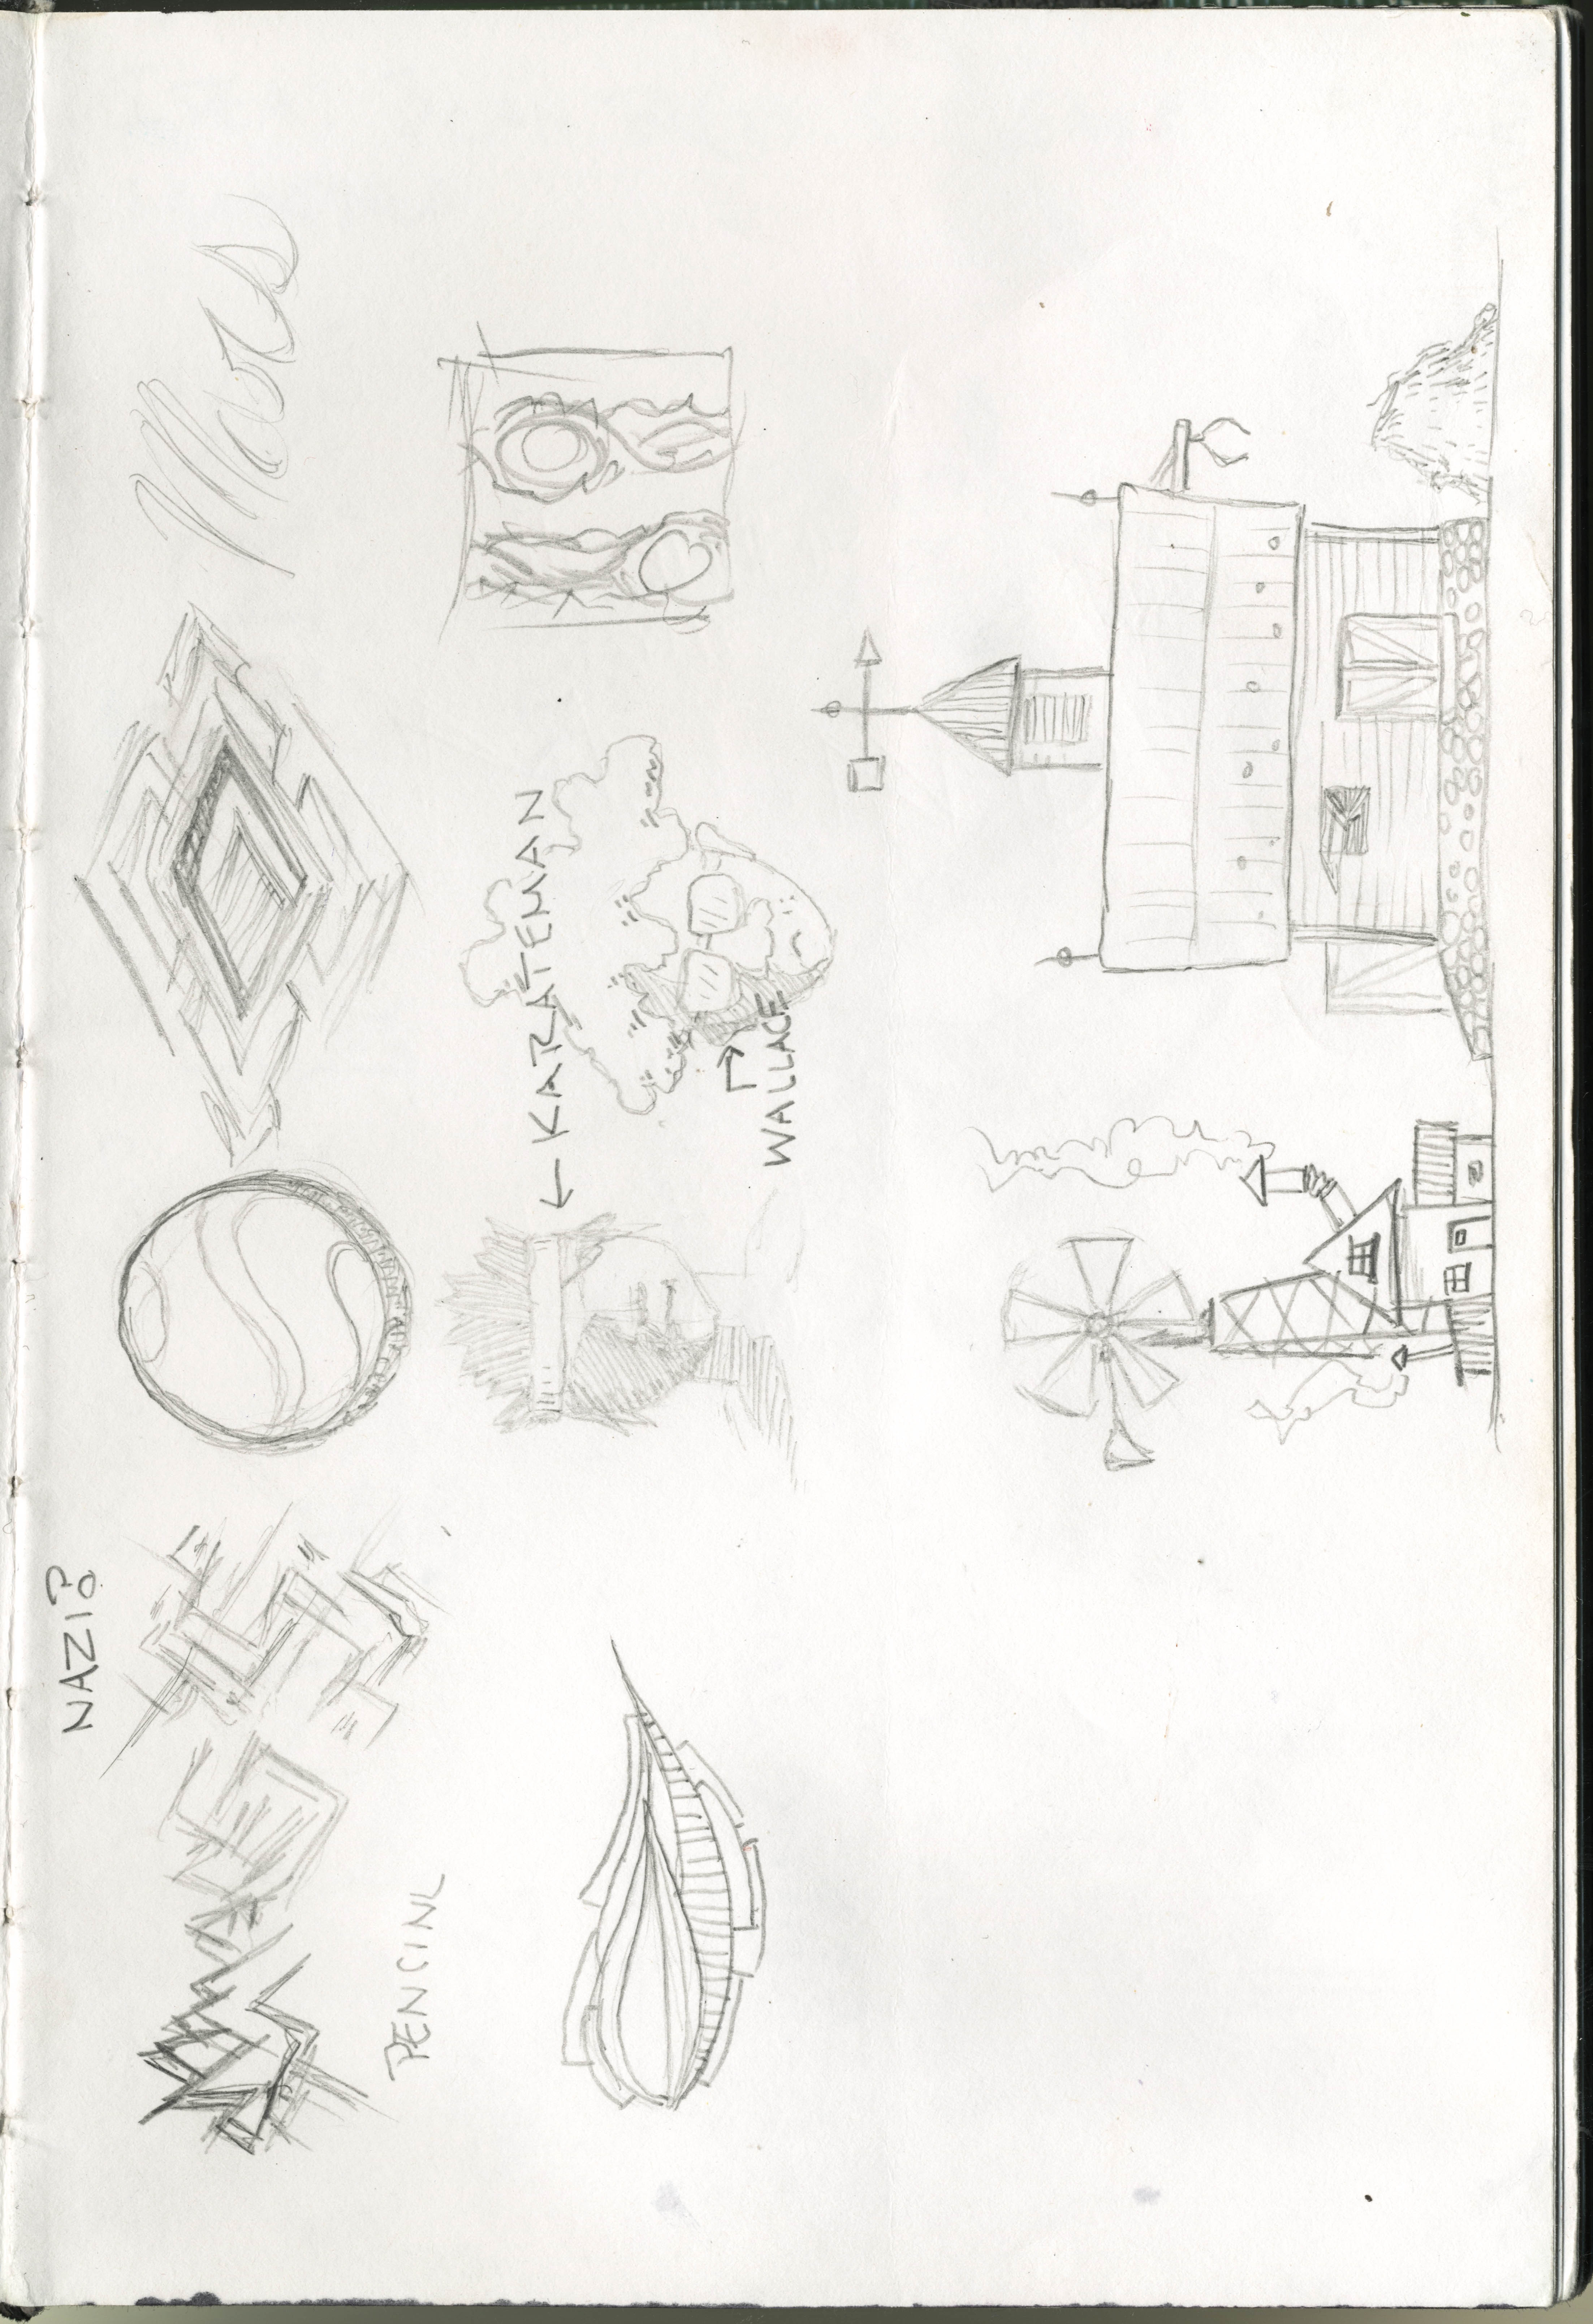 NAZI?
PENCINL
← KARATEMAN
WALLACE